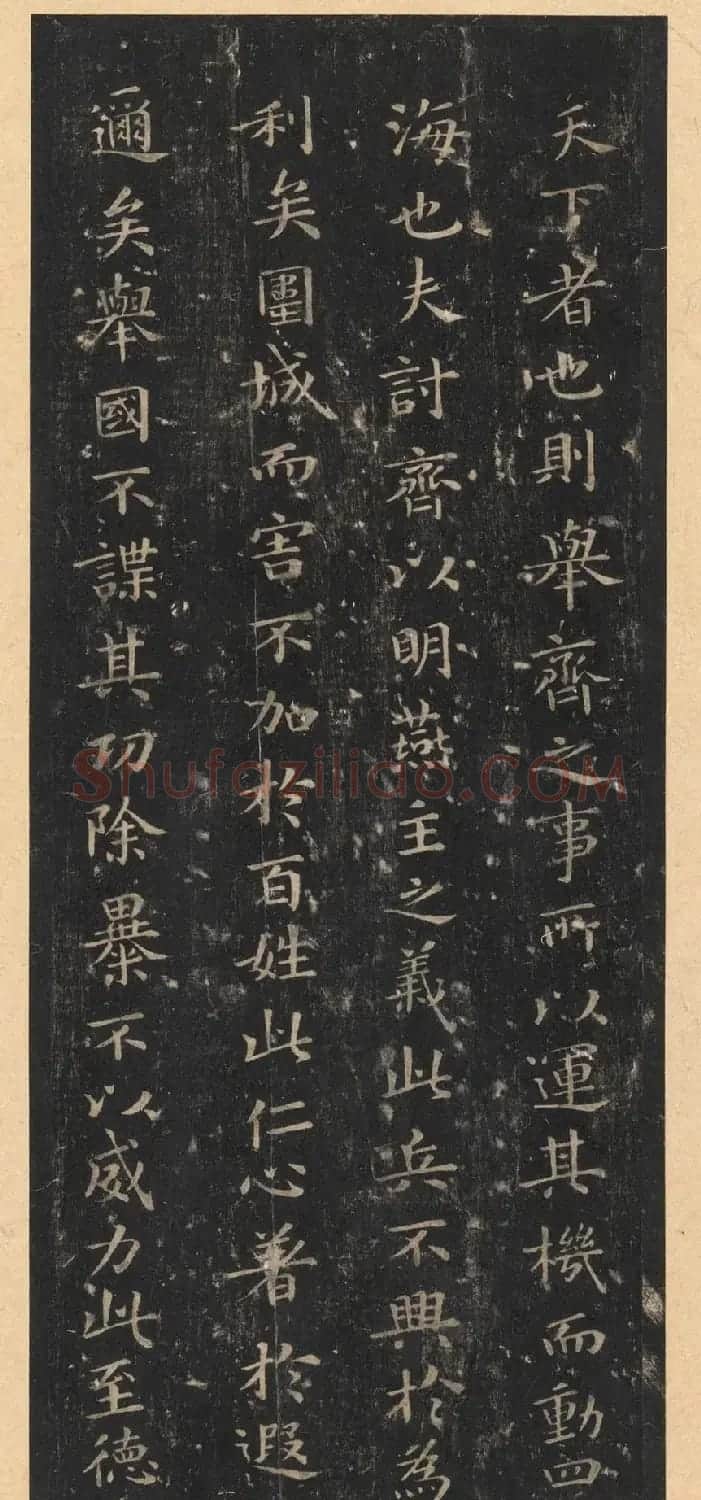 天下者也則舉齊之事所以運其機而動四
海也夫討齊以明燕主之義此兵不興於為
利矣圍城而害不加於百姓此仁心著於遐
邇矣舉國不謀其功除暴不以威力此至德
Shufazilido.COM